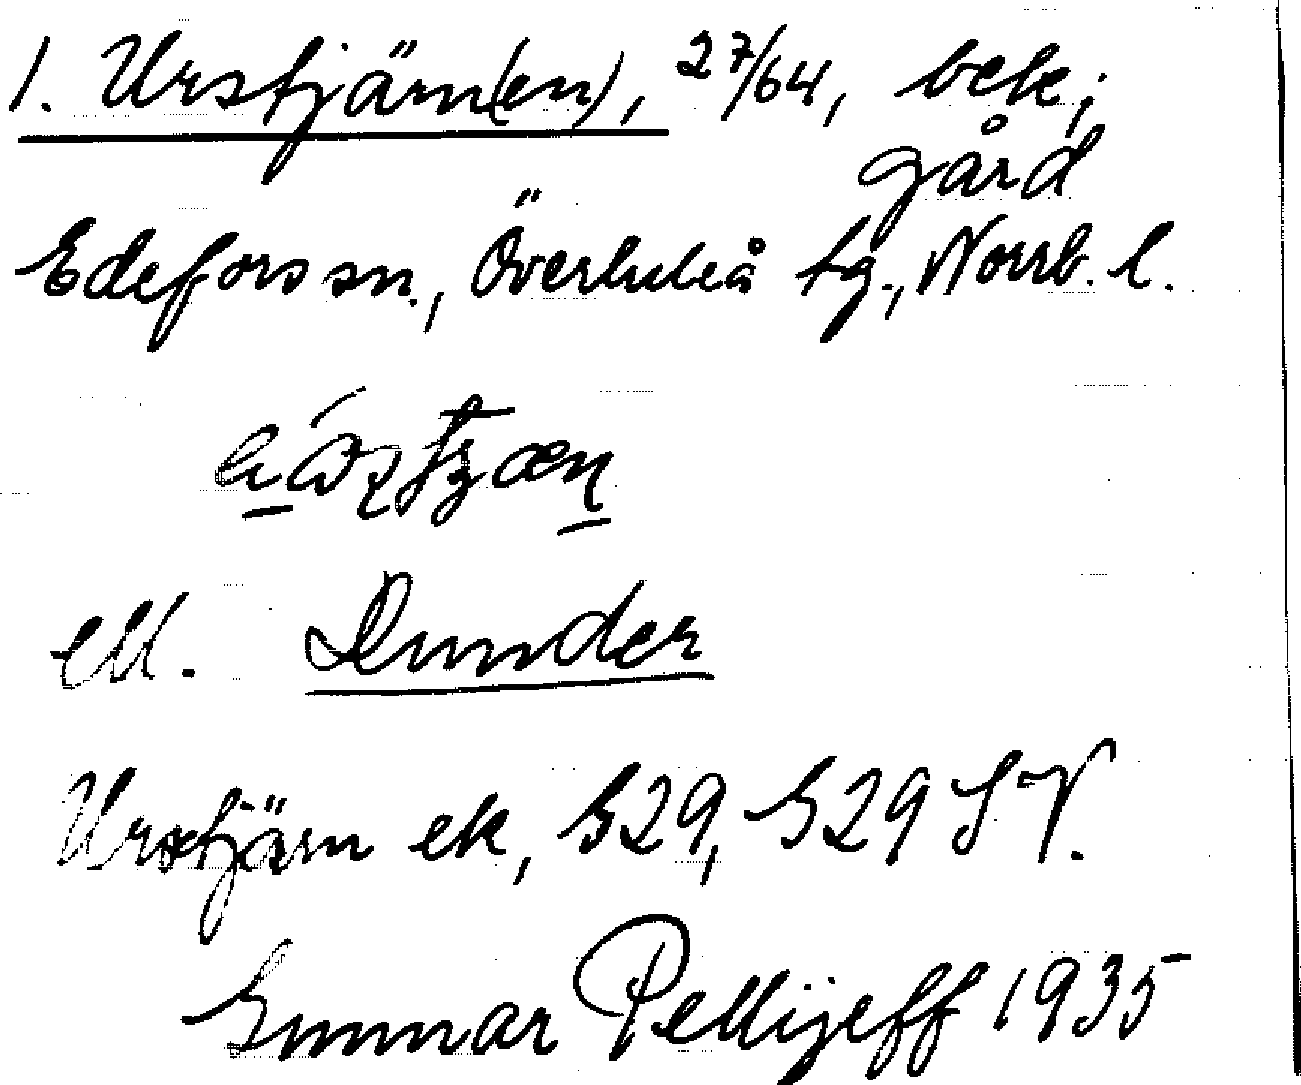 1. Urstjärn(en), 27/64, bek;
gård
Edefors sn., Överluleå tg., Norrb. l.
ell. Dunder
Urstjärn ek, S29, S29 SV.
Gunnar Pellijeff 1935